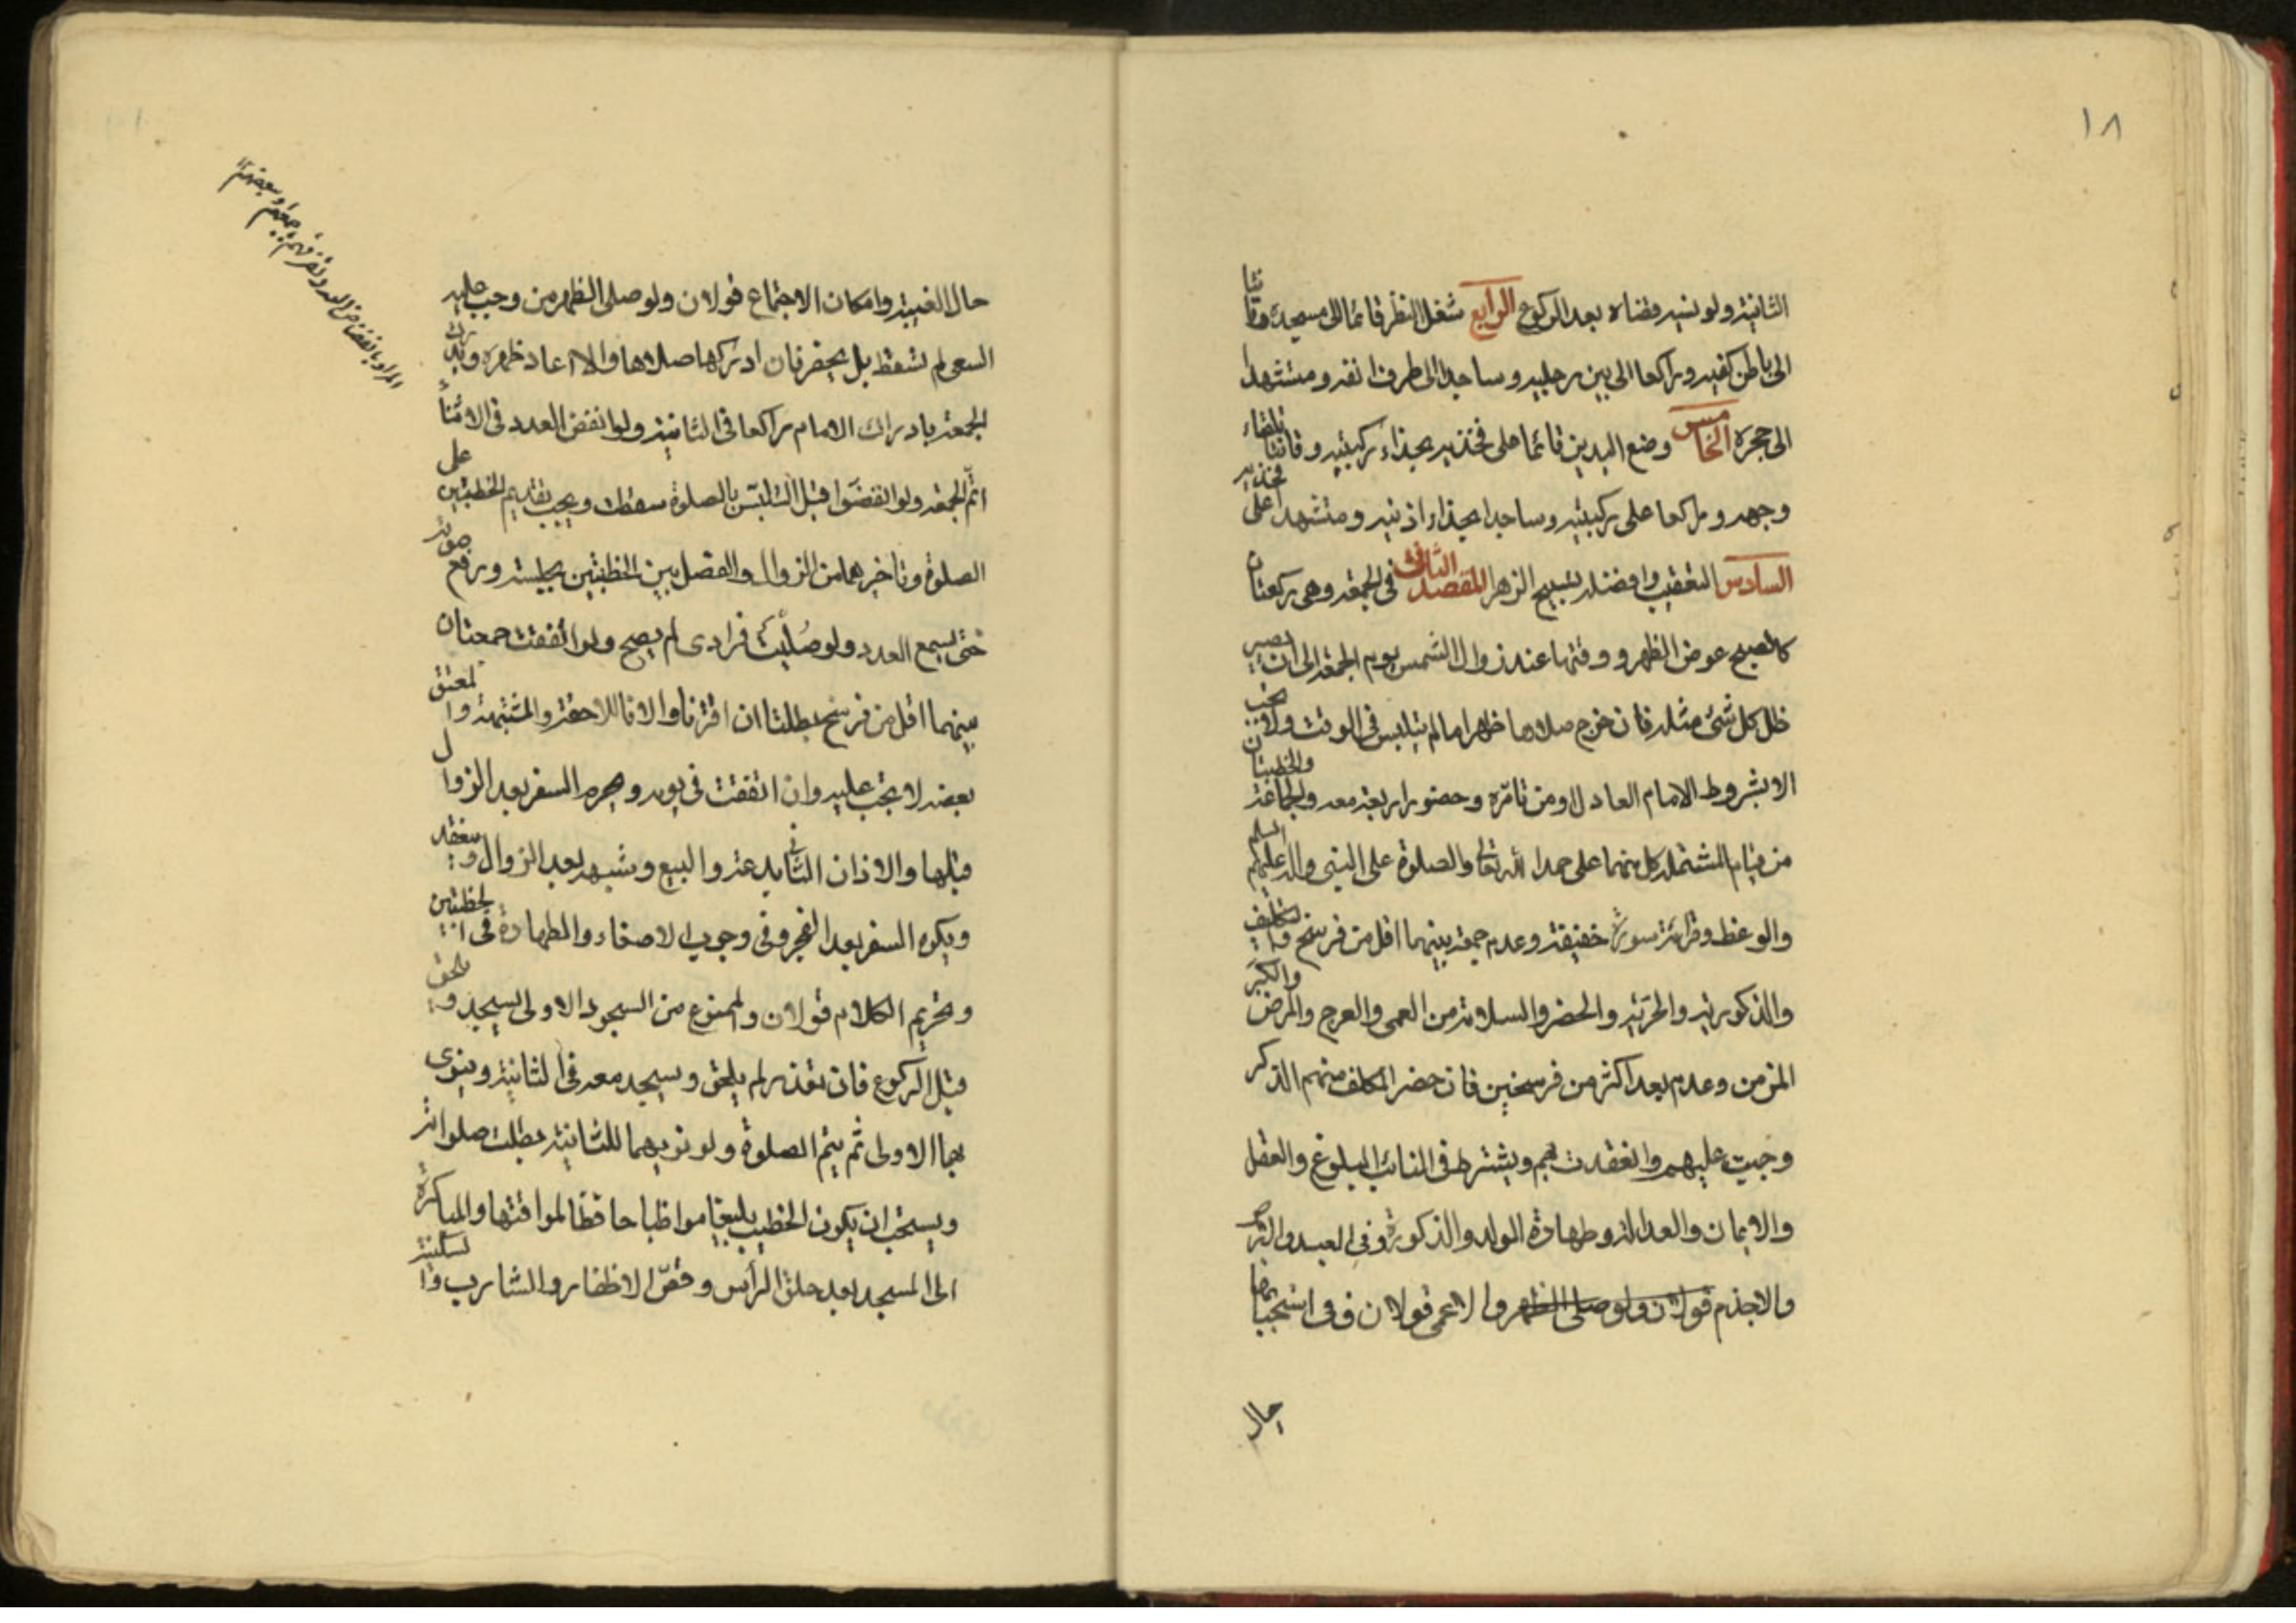 ١٨
الثانية ولو نسيه قضاه بعد الركوع الرابع شغل النظر قائما الى مسجده وقانتا
الى باطن كفيه وراكعا الى بين رجليه وساجدا الى طرف انفه ومتشهدا
الى حجره الخامس وضع اليدين قائما على فخذيه بحذاء ركبتيه وقانتا تلقاء
وجهه وراكعا على ركبتيه وساجدا بحذاء اذنيه ومتشهدا على فخذيه
السادس التعقيب وافضله تسبيح الزهرا المقصد الثانى فى الجمعة وهى ركعتان
كالصبح عوض الظهر ووقتها عند زوال الشمس يوم الجمعة الى ان يصير
ظل كل شئ مثله فان خرج صلاها ظهرا ما لم يتلبس فى الوقت ولا تجب
الا بشروط الامام العادل او من نامره وحضور اربعة معه والجماعة والخطبتان
من قيام المشتملة كل منهما على حمد الله تعالى والصلوة على النبى واله عليهم السلم
والوعظ وقرائة سورة خفيفة وعدم جمعة بينهما اقل من فرسخ والتكليف
والذكورية والحرية والحضر والسلامة من العمى والعرج والمرض والكبر
المزمن وعدم بعد اكثر من فرسخين فان حضر المكلف منهم الذكر
وجبت عليهم وانعقدت بهم ويشترط فى النائب البلوغ والعقل
والايمان والعدالة وطهارة الولد والذكورة وفى العبد والابرص
والاجذم قولان ولو صلى الظهر والاعمى قولان وفى استحبابها
حال
حال الغيبة وامكان الاجتماع قولان ولو صلى الظهر من وجب عليه
السعى لم تسقط بل يحضر فان ادركها صلاها والا اعاد ظهره ويدرك
الجمعة بادراك الامام راكعا فى الثانية ولو انفض العدد فى الاثناء
اتم الجمعة ولو انفضوا قبل التلبس بالصلوة سقطت ويجب تقديم الخطبتين على
الصلوة وتاخيرهما من الزوال والفصل بين الخطبتين بجلسة ورفع صوته
حتى يسمع العدد ولو صليت فرادى لم يصح ولو اتفقت جمعتان
بينهما اقل من فرسخ بطلتا ان اقترنا والا فاللاحقة والمشتبهة والمعتق
بعضه لا يجب عليه وان اتفقت فى يومه ويحرم السفر بعد الزوال
قبلها والاذان الثانى بدعة والبيع وشبهه بعد الزوال وينعقد
ويكره السفر بعد الفجر وفى وجوب الاصغاء والطهارة فى الخطبتين
وتحريم الكلام قولان والممنوع من السجود الاولى يسجد ويلحق
قبل الركوع فان تعذر لم يلحق ويسجد معه فى الثانية وينوى
بهما الاولى ثم يتم الصلوة ولو نوى بهما للثانية بطلت صلواته
ويستحب ان يكون الخطيب بليغا مواظبا حافظا لمواقتها والمباكرة
الى المسجد بعد حلق الراس وقص الاظفار والشارب والسكينة
المراد بانفضاض العدد تفرقهم جميعهم او بعضهم